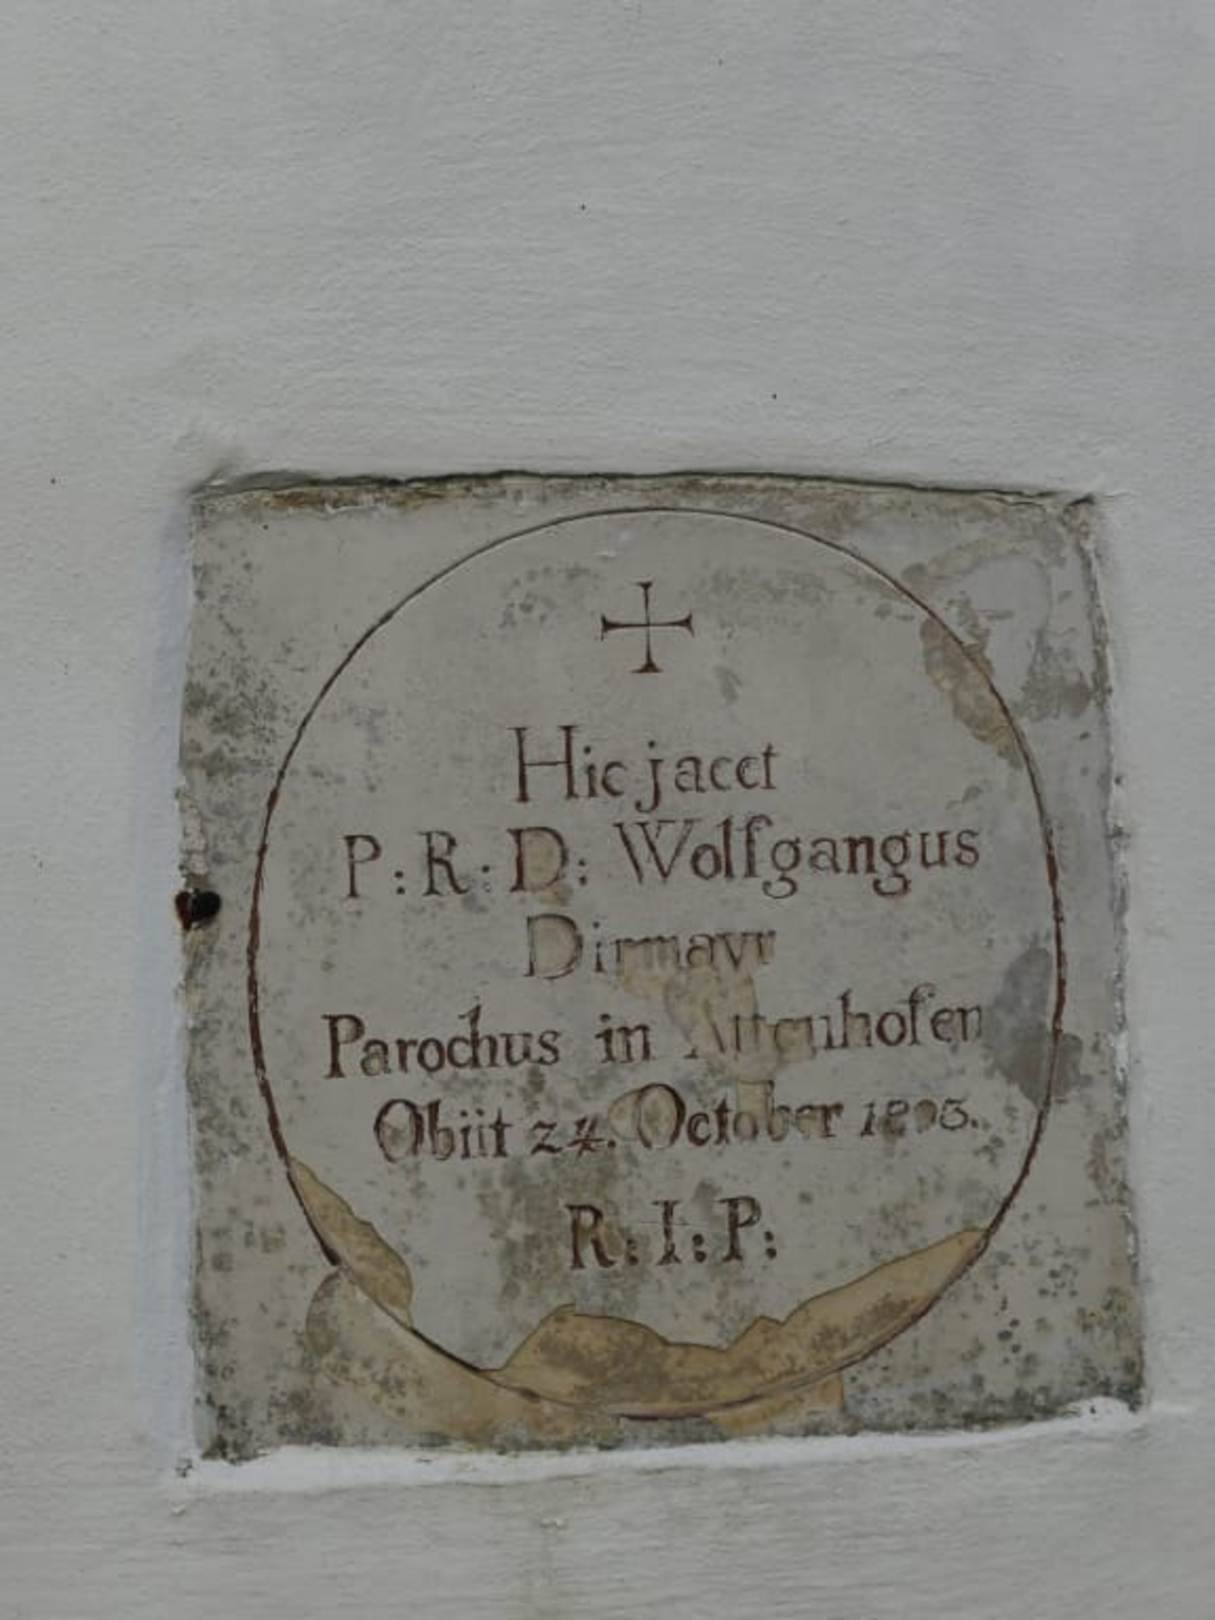 Hic jacet
P: R: D: Wolfgangus
Dirmayr
Parochus in Attenhofen
Obiit 24. October 1803.
R: I: P: